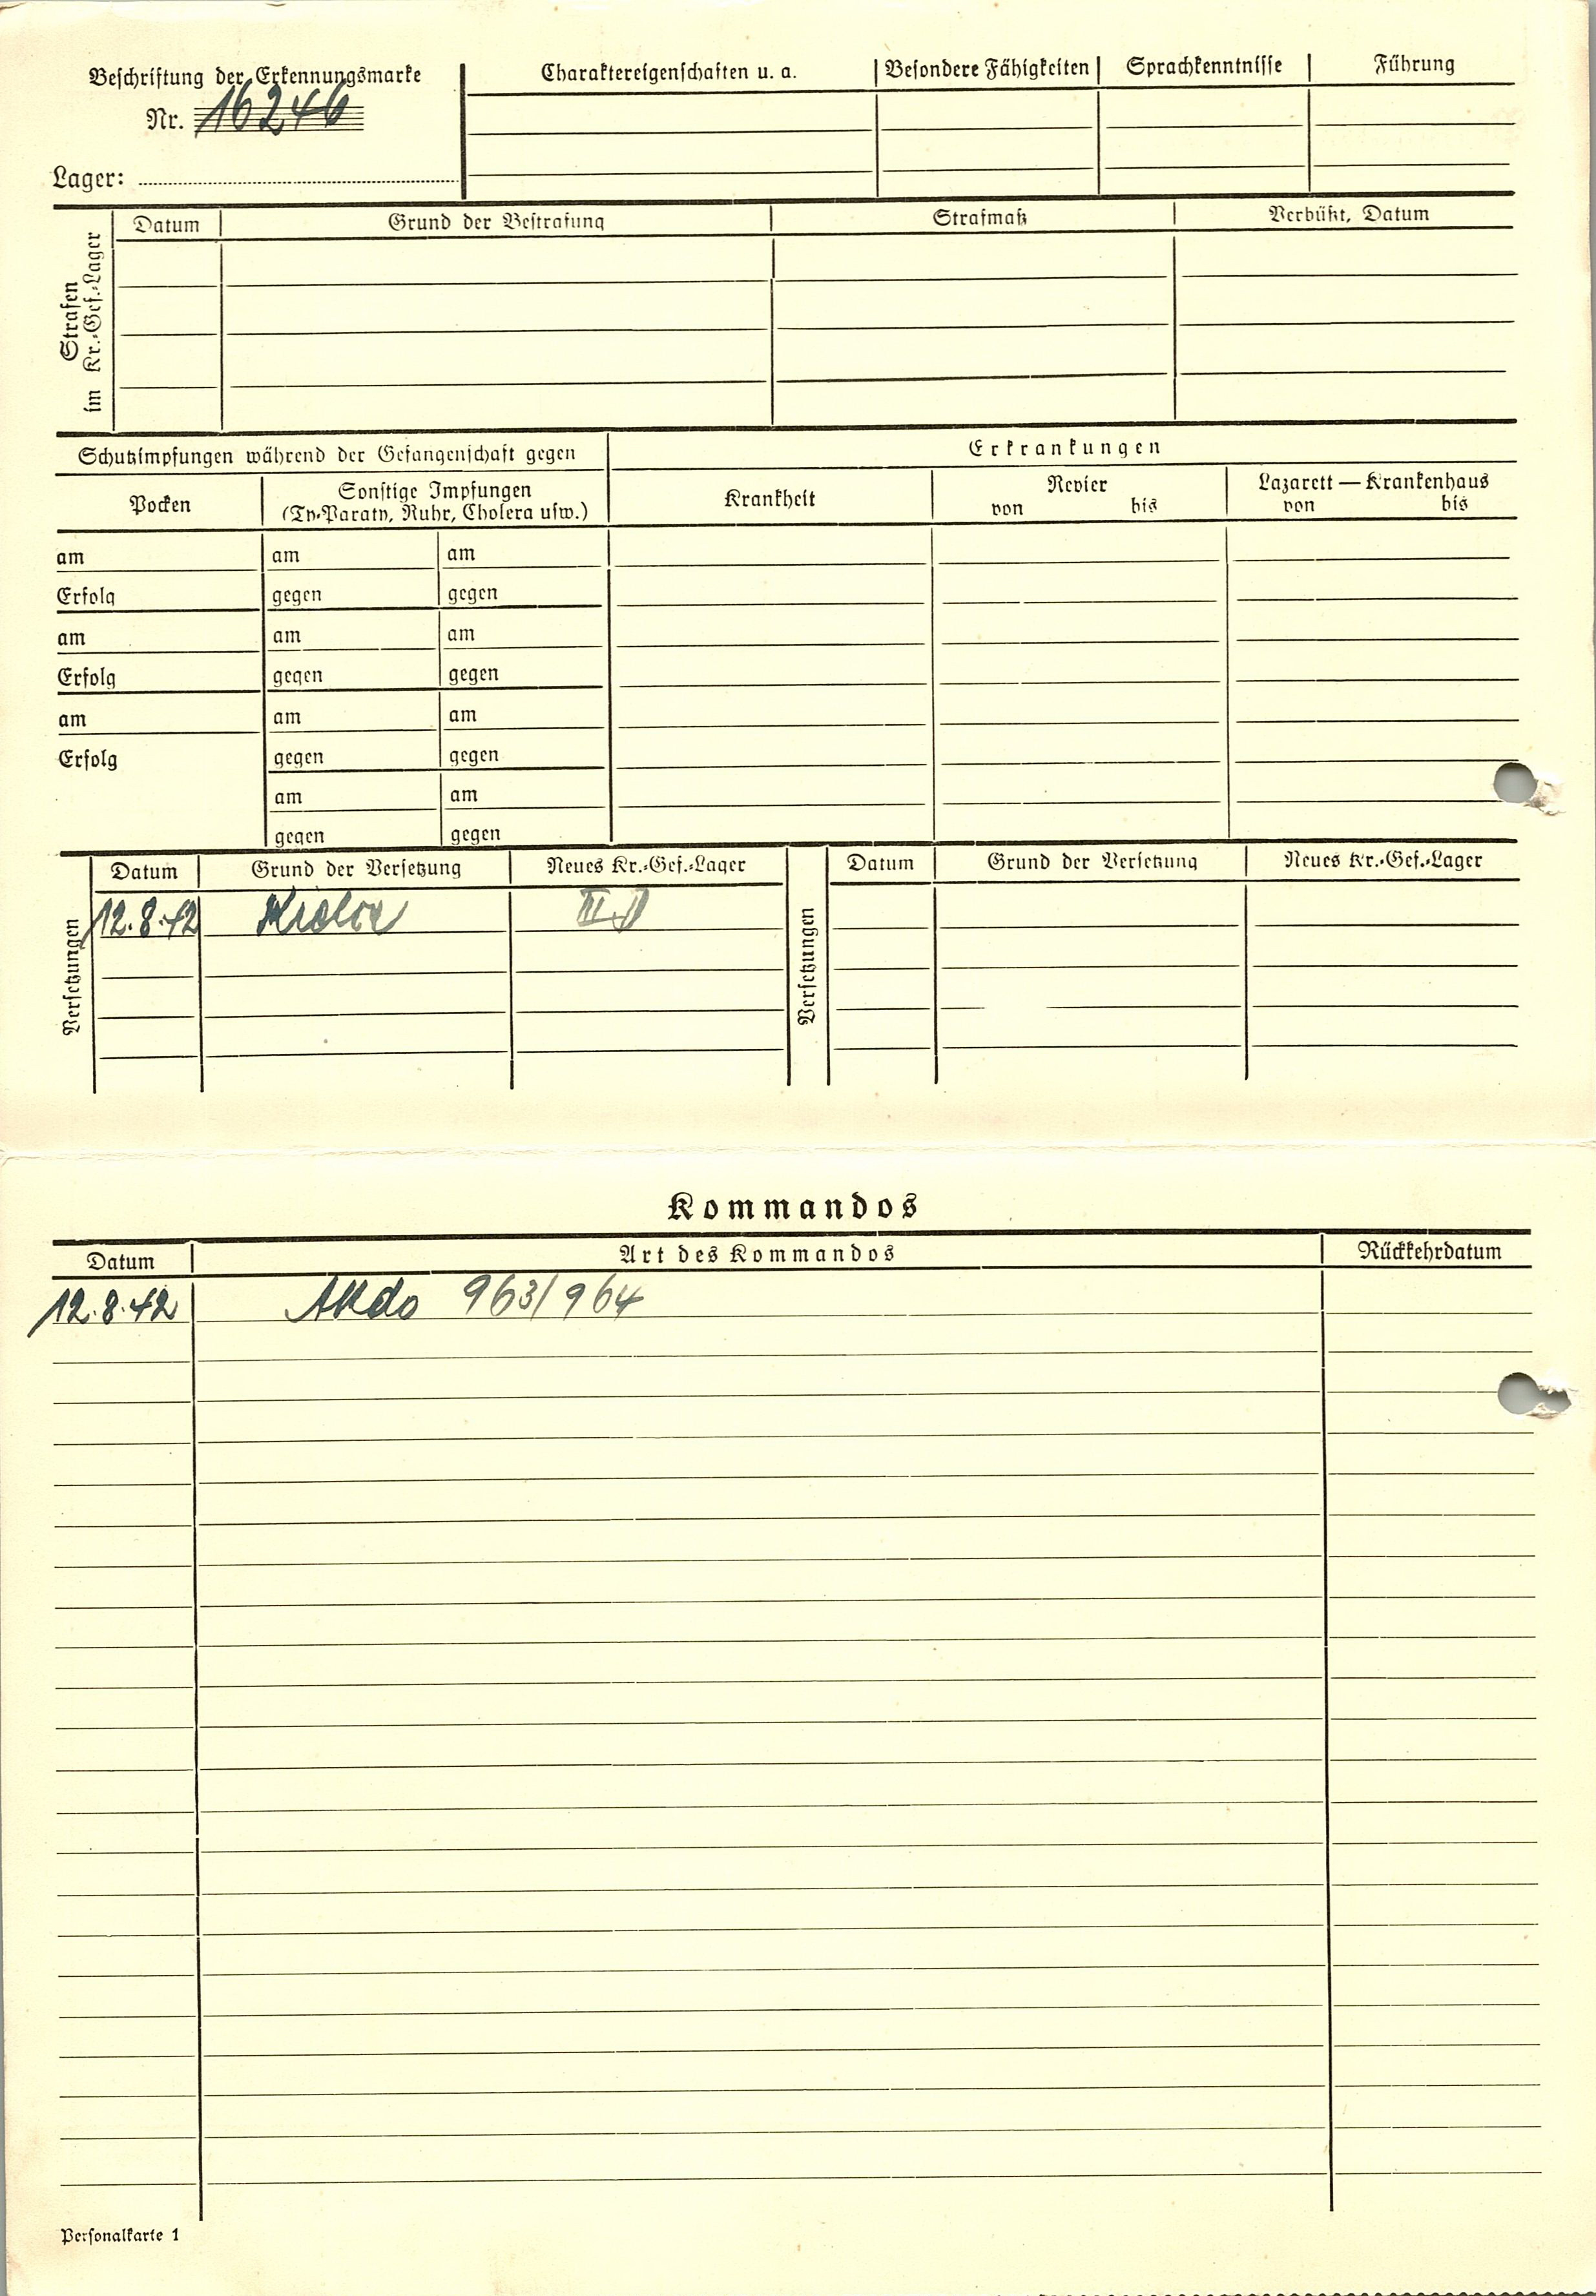 Beschriftung der Erkennungsmarke
Nr. 16246
Lager:
Charaktereigenschaften u. a.
Besondere Fähigkeiten
Sprachkenntnisse
Führung
Strafen
im Kr.-Gef.-Lager
Datum
Grund der Bestrafung
Strafmaß
Verbüßt, Datum
Schutzimpfungen während der Gefangenschaft gegen
Erkrankungen
Pocken
Sonstige Impfungen
(Ty-Paraty, Ruhr, Cholera usw.)
Krankheit
Revier
von bis
Lazarett — Krankenhaus
von bis
am am am
Erfolg gegen gegen
am am am
Erfolg gegen gegen
am am am
Erfolg gegen gegen
am am
gegen gegen
Versetzungen
Datum
Grund der Versetzung
Neues Kr.-Gef.-Lager
12.8.42
Versetzungen
Datum
Grund der Versetzung
Neues Kr.-Gef.-Lager
Kommandos
Datum
Art des Kommandos
Rückkehrdatum
12.8.42 AKdo 963/964
Personalkarte 1